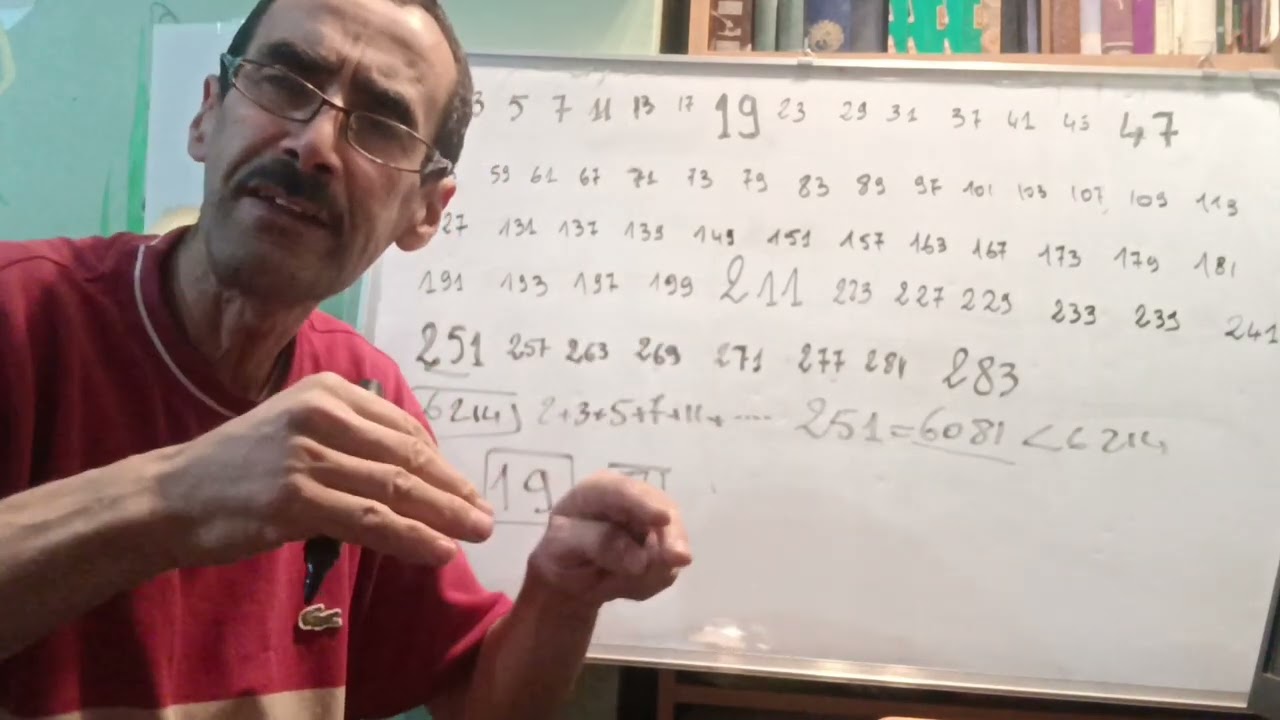 3 5 7 11 13 17 19 23 29 31 37 41 43 47
59 61 67 71 73 79 83 89 97 101 103 107 109 113
27 131 137 139 149 151 157 163 167 173 179 181
191 193 197 199 211 223 227 229 233 239 241
251 257 263 269 271 277 281 283
6214 2+3+5+7+11+.... 251=6081 <6214
19